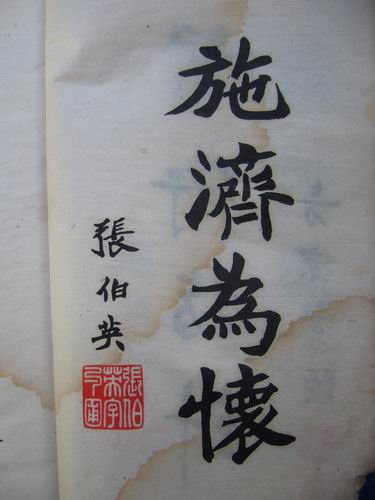 施濟為懷
張伯英
張伯英字勺圃